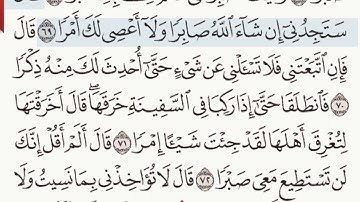 سَتَجِدُنِيٓ إِن شَآءَ ٱللَّهُ صَابِرٗا وَلَآ أَعۡصِي لَكَ أَمۡرٗا ٦٩ قَالَ
فَإِنِ ٱتَّبَعۡتَنِي فَلَا تَسۡـَٔلۡنِي عَن شَيۡءٍ حَتَّىٰٓ أُحۡدِثَ لَكَ مِنۡهُ ذِكۡرٗا
٧٠ فَٱنطَلَقَا حَتَّىٰٓ إِذَا رَكِبَا فِي ٱلسَّفِينَةِ خَرَقَهَاۖ قَالَ أَخَرَقۡتَهَا
لِتُغۡرِقَ أَهۡلَهَا لَقَدۡ جِئۡتَ شَيۡـًٔا إِمۡرٗا ٧١ قَالَ أَلَمۡ أَقُلۡ إِنَّكَ
لَن تَسۡتَطِيعَ مَعِيَ صَبۡرٗا ٧٢ قَالَ لَا تُؤَاخِذۡنِي بِمَا نَسِيتُ وَلَا